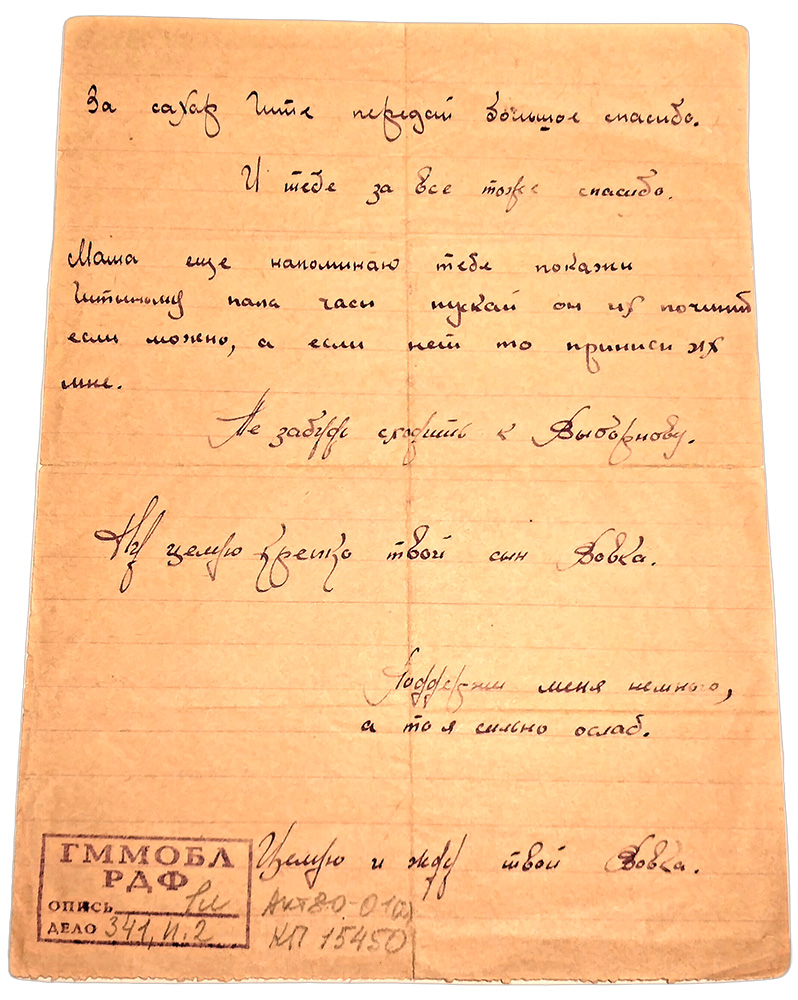 За сахар Тите передай большое спасибо.
И тебе за все тоже спасибо.
Мама еще напоминаю тебе покажи
Титиному папа часи пускай он их починит
если можно, а если нет то приниси их
мне.
Не забудь сходить к Выборнову.
Ну целую крепко твой сын Вовка.
Поддержи меня немного,
а то я сильно ослаб.
Целую и жду твой Вовка.
ГММОБЛ
РДФ
опись 1л
дело 341, и.2
Акт 80-01(2)
КП 15450